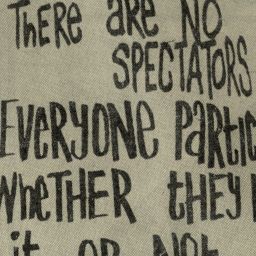 There are no
spectators
Everyone partic
whether they
it or not